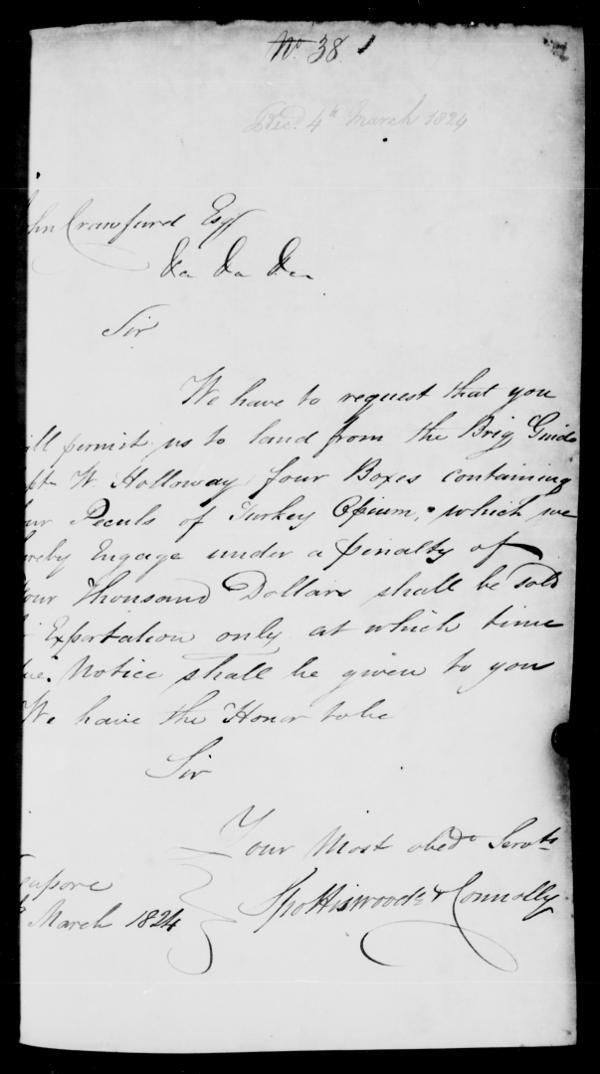 No. 38
Recd. 4th March 1824
ohn Crawfurd Esqr
&a &a &a
Sir
We have to request that you
ill permit us to land from the Brig Guide
apt W. Holloway four Boxes containing
our Peculs of Turkey Opium, which we
ereby Engage under a penalty of
our Thousand Dollars shall be sold
r Exportation only at which time
ue. Notice shall be given to you
We have the Honor to be
Sir
Your Most obedt Servts
Spottiswoode & Connolly
gapore
March 1824